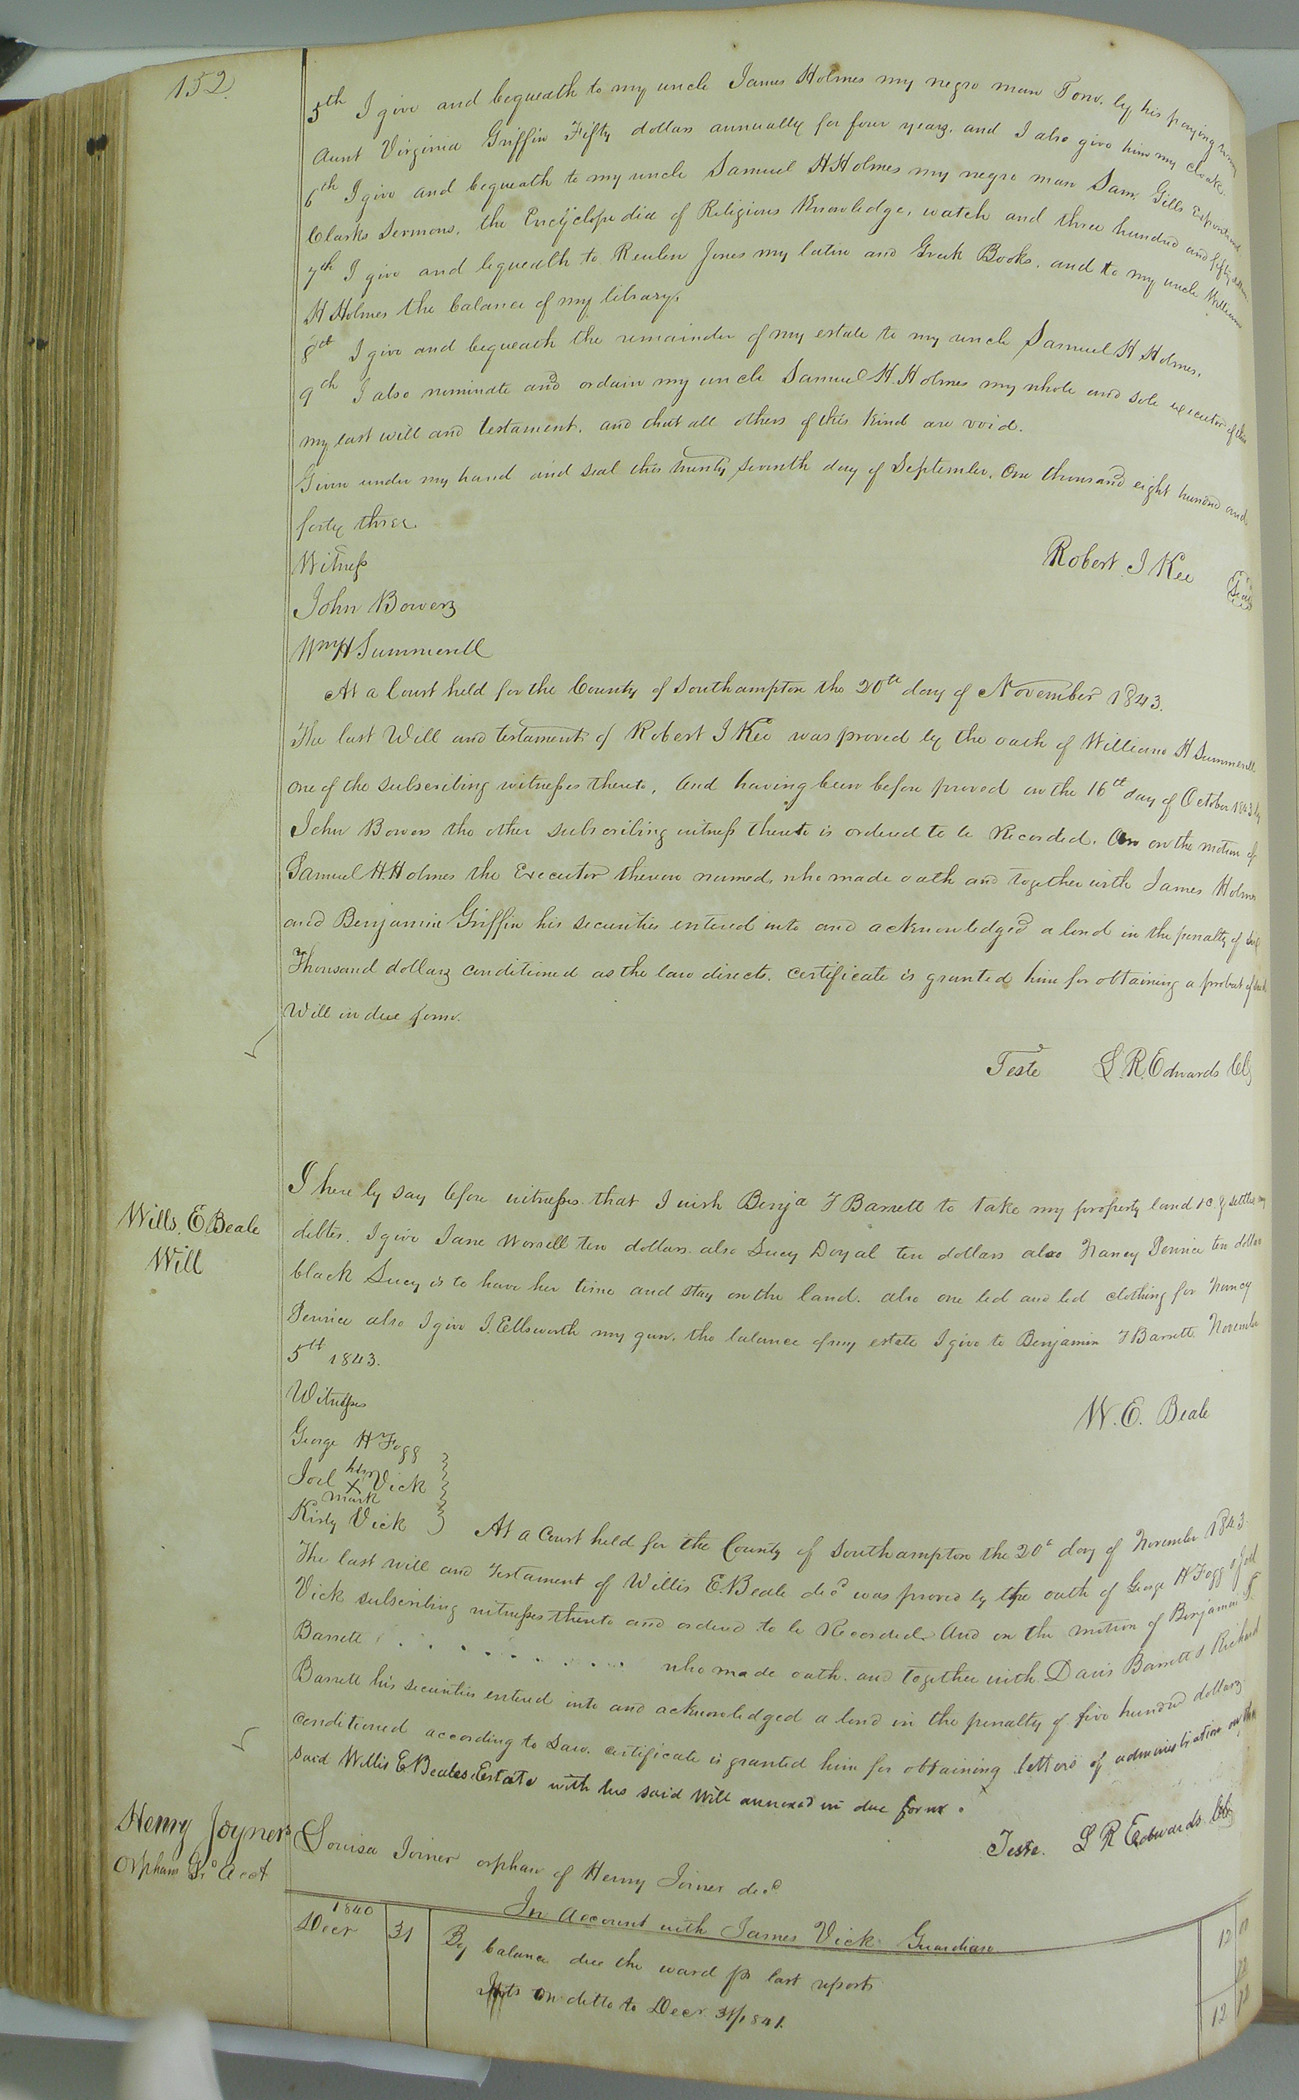 152.
5th I give and bequeath to my uncle James Holmes my negro man Tom. by his paying
Aunt Virginia Griffin Fifty dollars annually for four years. and I also give him my cloak.
6th I give and bequeath to my uncle Samuel H Holmes my negro man Sam, Gills
Clarks Sermons, the Encyclopedia of Religious Knowledge, watch and three hundred and fifty dollars
7th I give and bequeath to Reuben Jones my latin and Greek Books. and to my uncle William
H Holmes the balance of my library.
8th I give and bequeath the remainder of my estate to my uncle Samuel H Holmes.
9th I also nominate and ordain my uncle Samuel H. Holmes my whole and sole executor of this
my last will and testament. and that all others of this kind are void.
Given under my hand and seal this twenty seventh day of September, One thousand eight hundred and
forty three.
Robert J Kee Seal
Witness
John Bowers
Wm H Summerell
At a Court held for the County of Southampton the 20th day of November 1843.
The last Will and testament of Robert J Kee was proved by the oath of William H Summerell
one of the subscribing witnesses thereto, And having been before proved on the 16th day of October 1843 by
John Bowers the other subscribing witness thereto is ordered to be Recorded. on the motion of
Samuel H. Holmes the Executor therein named, who made oath and together with James Holmes
and Benjamin Griffin his securities entered into and acknowledged a bond in the penalty of
Thousand dollars conditioned as the law directs. certificate is granted him for obtaining a probat of said
Will in due form.
Teste L. R. Edwards Clk
Wills. E. Beale
Will
I here by say before witnesses that I wish Benja F Barrett to take my property land &c & settle my
debts. I give Jane Worrell ten dollars also Lucy Doyal ten dollars also Nancy ten dollars
black Lucy is to have her time and stay on the land. also one bed and bed clothing for Nancy
also I give J. Ellsworth my gun. the balance of my estate I give to Benjamin F Barrett. November
5th 1843.
W. E. Beale
Witnesses
George H Fogg
Joel his X mark Vick
Kirby Vick
At a Court held for the County of Southampton the 20th day of November 1843.
The last will and Testament of Willis E. Beale decd was proved by the oath of George H Fogg & Joel
Vick subscribing witnesses thereto and ordered to be Recorded. And on the motion of Benjamin F
Barrett . . . . . . . . . who made oath. and together with Davis Barrett & Richard
Barrett his securities entered into and acknowledged a bond in the penalty of five hundred dollars
conditioned according to Law. certificate is granted him for obtaining letters of administration on the
said Willis E Beales Estate with his said Will annexed in due form.
Teste. L R Edwards Clk
Henry Joyners
Orphans Gr. Acct
Louisa Joiner orphan of Henry Joiner decd
In Account with James Vick Guardian
1840
Decr 31 By balance due the ward pr last report 12
Ints on ditto to Decr 31/1841.
12 72